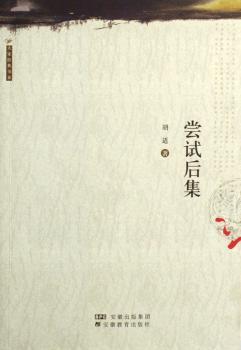 尝试后集
胡适 著
安徽出版集团
安徽教育出版社